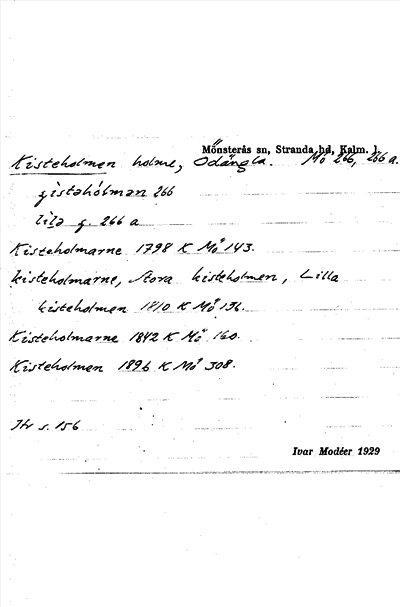 Mönsterås sn, Stranda hd, Kalm. l.
Kisteholmen holme, Ödängla. Mö 266, 266 a.
g̨istəhòlmən 266
lilə g. 266 a
Kisteholmarne 1798 K Mö 143.
kisteholmarne, Stora kisteholmen, Lilla
kisteholmen 1810 K Mö 136.
Kisteholmarne 1842 K Mö 160.
Kisteholmen 1896 K Mö 308.
s. 156
Ivar Modéer 1929